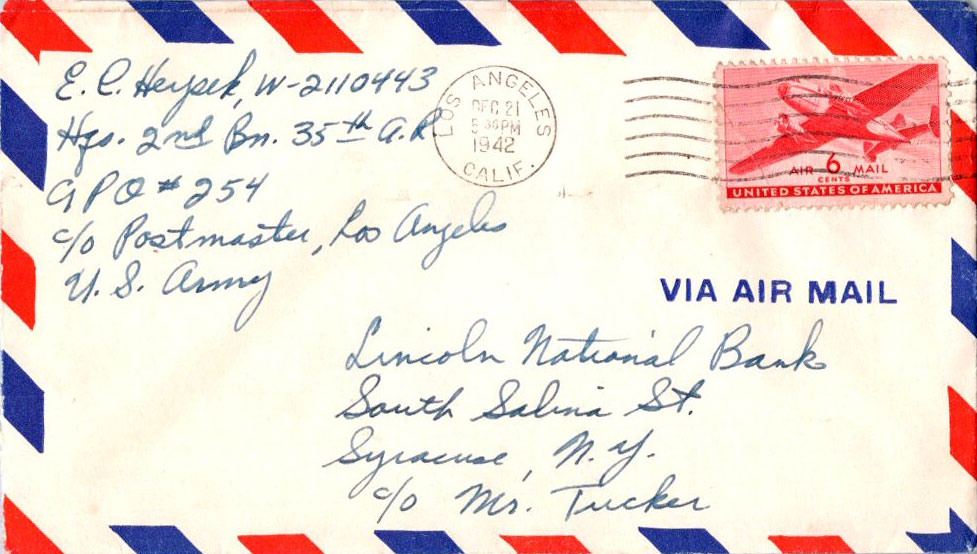 E. C. Heysek, W-2110443
Hqs. 2nd Bn. 35th A.R.
APO # 254
c/o Postmaster, Los Angeles
U. S. Army
LOS ANGELES
DEC 21
5 30 PM
1942
CALIF.
AIR 6 MAIL
CENTS
UNITED STATES OF AMERICA
VIA AIR MAIL
Lincoln National Bank
South Salina St.
Syracuse, N.Y.
c/o Mr. Tucker